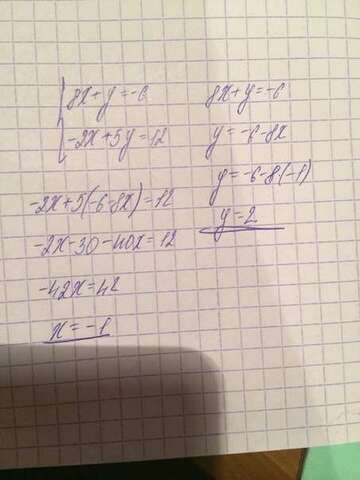 8x+y=-6
-2x+5y=12
-2x+5(-6-8x)=12
-2x-30-40x=12
-42x=42
x=-1
8x+y=-6
y=-6-8x
y=-6-8(-1)
y=2